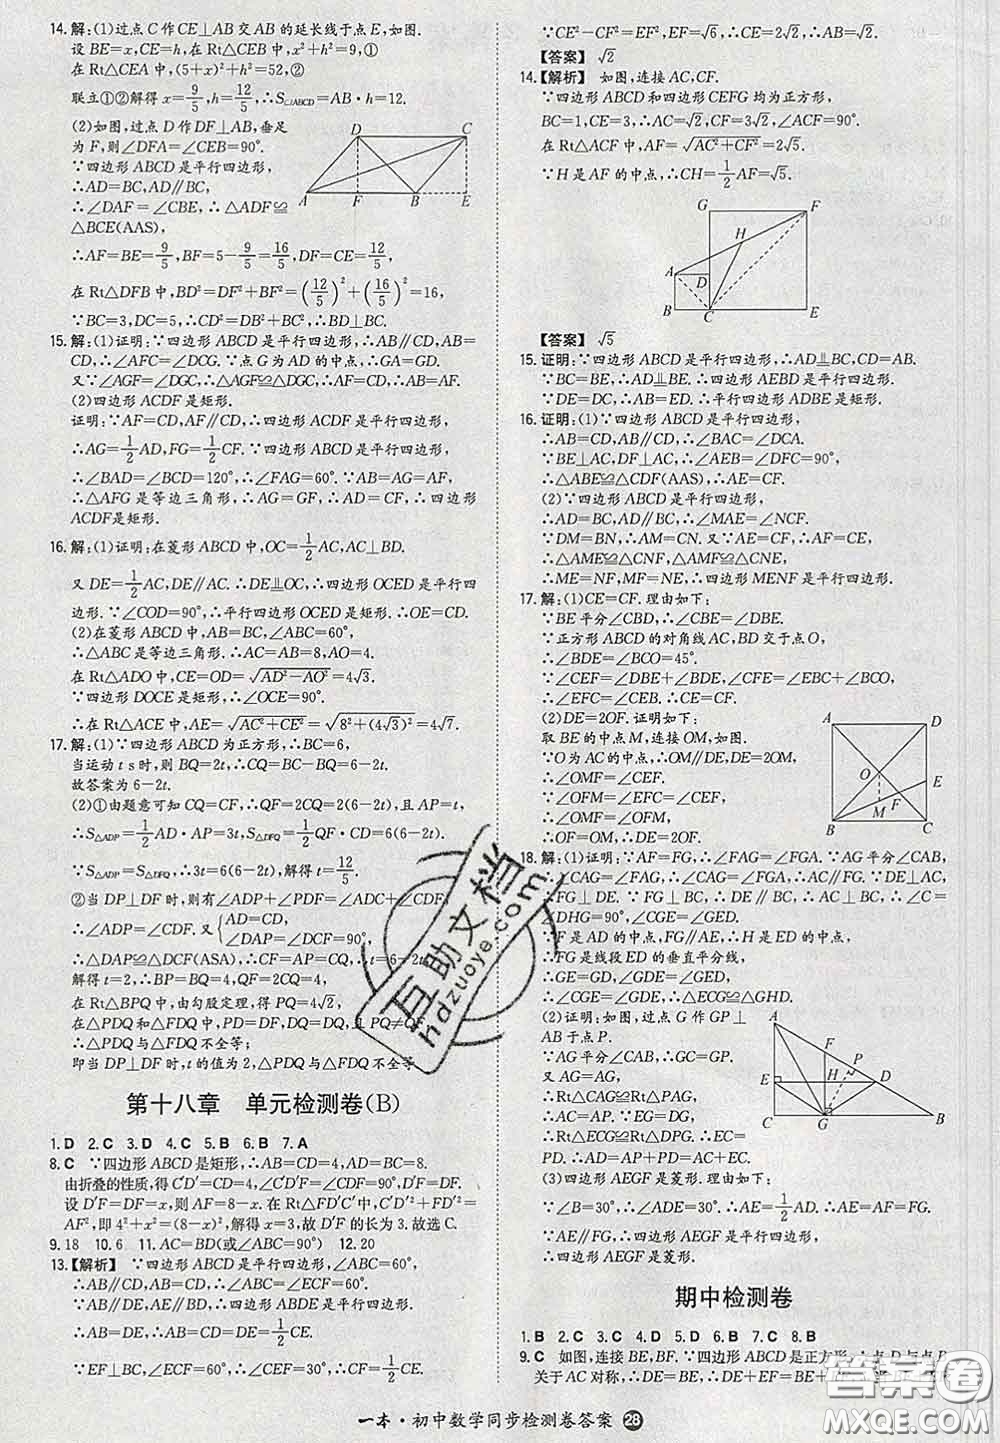 14.解:(1)过点C作CE⊥AB交AB的延长线于点E,如图.
设BE=x,CE=h,在Rt△CEB中,x²+h²=9,①
在Rt△CEA中,(5+x)²+h²=52,②
联立①②解得x=9/5,h=12/5,∴S▱ABCD=AB·h=12.
(2)如图,过点D作DF⊥AB,垂足
为F,则∠DFA=∠CEB=90°.
∵四边形ABCD是平行四边形,
∴AD=BC,AD∥BC,
∴∠DAF=∠CBE,∴△ADF≌
△BCE(AAS),
∴AF=BE=9/5,BF=5-9/5=16/5,DF=12/5.
在Rt△DFB中,BD²=DF²+BF²=(12/5)²+(16/5)²=16,
∵BC=3,DC=5,∴CD²=DB²+BC²,∴BD⊥BC.
D C
A F B E
15.解:(1)证明:∵四边形ABCD是平行四边形,∴AB∥CD,AB=CD,
∴∠AFC=∠DCG.∵点G为AD的中点,∴GA=GD.
又∵∠AGF=∠DGC,∴△AGF≌△DGC,∴AF=CD,∴AB=AF.
(2)四边形ACDF是矩形.
证明:∵AF=CD,AF∥CD,∴四边形ACDF是平行四边形,
∴AG=1/2AD,FG=1/2CF.∵四边形ABCD是平行四边形,
∴∠BAD=∠BCD=120°,∴∠FAG=60°.∵AB=AG=AF,
∴△AFG是等边三角形,∴AG=GF,∴AD=CF,∴四边形
ACDF是矩形.
16.解:(1)证明:在菱形ABCD中,OC=1/2AC,AC⊥BD.
又DE=1/2AC,DE∥AC,∴DE⫫OC,∴四边形OCED是平行四
边形.∵∠COD=90°,∴平行四边形OCED是矩形.∴OE=CD.
(2)在菱形ABCD中,AB=BC,∠ABC=60°,
∴△ABC是等边三角形,∴AC=AB=8,AO=4.
在Rt△ADO中,CE=OD=√(AD²-AO²)=4√3.
∵四边形DOCE是矩形,∴∠OCE=90°.
∴在Rt△ACE中,AE=√(AC²+CE²)=√(8²+(4√3)²)=4√7.
17.解:(1)∵四边形ABCD为正方形,∴BC=6,
当运动t s时,则BQ=2t,∴CQ=BC-BQ=6-2t,
故答案为6-2t.
(2)①由题意可知CQ=CF,∴QF=2CQ=2(6-2t),且AP=t,
∴S△ADP=1/2AD·AP=3t,S△DFQ=1/2QF·CD=6(6-2t),
∵S△ADP=S△DFQ,∴3t=6(6-2t),解得t=12/5.
②当DP⊥DF时,则有∠ADP+∠PDC=∠PDC+∠CDF,
∴∠ADP=∠CDF.又{AD=CD,
∠DAP=∠DCF=90°,
∴△DAP≌△DCF(ASA),∴CF=AP=CQ,∴t=6-2t,
解得t=2,∴BP=BQ=4,AP=CQ=2.
在Rt△BPQ中,由勾股定理,得PQ=4√2,
在△PDQ和△FDQ中,PD=DF,DQ=DQ,且PQ≠QF,
∴△PDQ与△FDQ不全等;
即当DP⊥DF时,t的值为2,△PDQ与△FDQ不全等.
第十八章 单元检测卷(B)
1.D 2.C 3.D 4.C 5.B 6.B 7.A
8.C ∵四边形ABCD是矩形,∴AB=CD=4,AD=BC=8.
由折叠的性质,得C'D'=CD=4,∠C'=∠C=90°,D'F=DF.
设D'F=DF=x,则AF=8-x.在Rt△FD'C'中,C'D'²+FD'²=
AF²,即4²+x²=(8-x)²,解得x=3,故D'F的长为3.故选C.
9.18 10.6 11.AC=BD(或∠ABC=90°) 12.20
13.【解析】 ∵四边形ABCD是平行四边形,∠ABC=60°,
∴AB∥CD,AB=CD,∴∠ABC=∠ECF=60°.
∵AB∥DE,AE∥BD,∴四边形ABDE是平行四边形.
∴AB=DE,∴AB=DE=CD=1/2CE.
∵EF⊥BC,∠ECF=60°,∴∠CEF=30°,∴CF=1/2CE.
∵CE²-CF²=EF²,EF=√6,∴CE=2√2,∴AB=√2.
【答案】 √2
14.【解析】 如图,连接AC,CF.
∵四边形ABCD和四边形CEFG均为正方形,
BC=1,CE=3,∴AC=√2,CF=3√2,∠ACF=90°.
在Rt△ACF中,AF=√(AC²+CF²)=2√5.
∵H是AF的中点,∴CH=1/2AF=√5.
G F
H
A D
B C E
【答案】 √5
15.证明:∵四边形ABCD是平行四边形,∴AD⫫BC,CD=AB.
∵BC=BE,∴AD⫫BE.∴四边形AEBD是平行四边形.
∵DE=DC,∴AB=ED.∴平行四边形ADBE是矩形.
16.证明:(1)∵四边形ABCD是平行四边形,
∴AB=CD,AB∥CD,∴∠BAC=∠DCA.
∵BE⊥AC,DF⊥AC,∴∠AEB=∠CFD=90°,
∴△ABE≌△CDF(AAS),∴AE=CF.
(2)∵四边形ABCD是平行四边形,
∴AD=BC,AD∥BC,∴∠MAE=∠NCF.
∵DM=BN,∴AM=CN.又∵AE=CF,∴AF=CE,
∴△AME≌△CNF,△AMF≌△CNE,
∴ME=NF,MF=NE,∴四边形MENF是平行四边形.
17.解:(1)CE=CF.理由如下:
∵BE平分∠CBD,∴∠CBE=∠DBE.
∵正方形ABCD的对角线AC,BD交于点O,
∴∠BDE=∠BCO=45°.
∵∠CEF=∠DBE+∠BDE,∠CFE=∠EBC+∠BCO,
∴∠EFC=∠CEB.∴CE=CF.
(2)DE=2OF.证明如下:
取BE的中点M,连接OM,如图.
∵O为AC的中点,∴OM∥DE,DE=2OM,
∴∠OMF=∠CEF.
∵∠OFM=∠EFC=∠CEF,
∴∠OMF=∠OFM,
∴OF=OM,∴DE=2OF.
A D
O E
F
B M C
18.解:(1)证明:∵AF=FG,∴∠FAG=∠FGA.∵AG平分∠CAB,
∴∠CAG=∠FAG,∴∠CAG=∠FGA,∴AC∥FG.∵DE⊥AC,
∴FG⊥DE.∵FG⊥BC,∴DE∥BC,∴AC⊥BC,∴∠C=
∠DHG=90°,∠CGE=∠GED.
∵F是AD的中点,FG∥AE,∴H是ED的中点,
∴FG是线段ED的垂直平分线,
∴GE=GD,∠GDE=∠GED,
∴∠CGE=∠GDE,∴△ECG≌△GHD.
(2)证明:如图,过点G作GP⊥
AB于点P.
∵AG平分∠CAB,∴GC=GP.
又AG=AG,
∴Rt△CAG≌Rt△PAG,
∴AC=AP.
∴Rt△ECG≌Rt△DPG.∴EC=
PD.∴AD=AP+PD=AC+EC.
(3)四边形AEGF是菱形.理由如下:
∵∠B=30°,∴∠ADE=30°.∴AE=1/2AD,∴AE=AF=FG.
∵AE∥FG,∴四边形AEGF是平行四边形,
∴四边形AEGF是菱形.
A
F P
E H D
C G B
期中检测卷
1.B 2.C 3.C 4.D 5.D 6.B 7.C 8.B
9.C 如图,连接BE,BF.∵四边形ABCD是正方形,∴点D与点B
关于AC对称,∴DE=BE,
一本·初中数学同步检测卷答案 28
互助文档
hdzuoye.com
答案圈
MXQE.COM